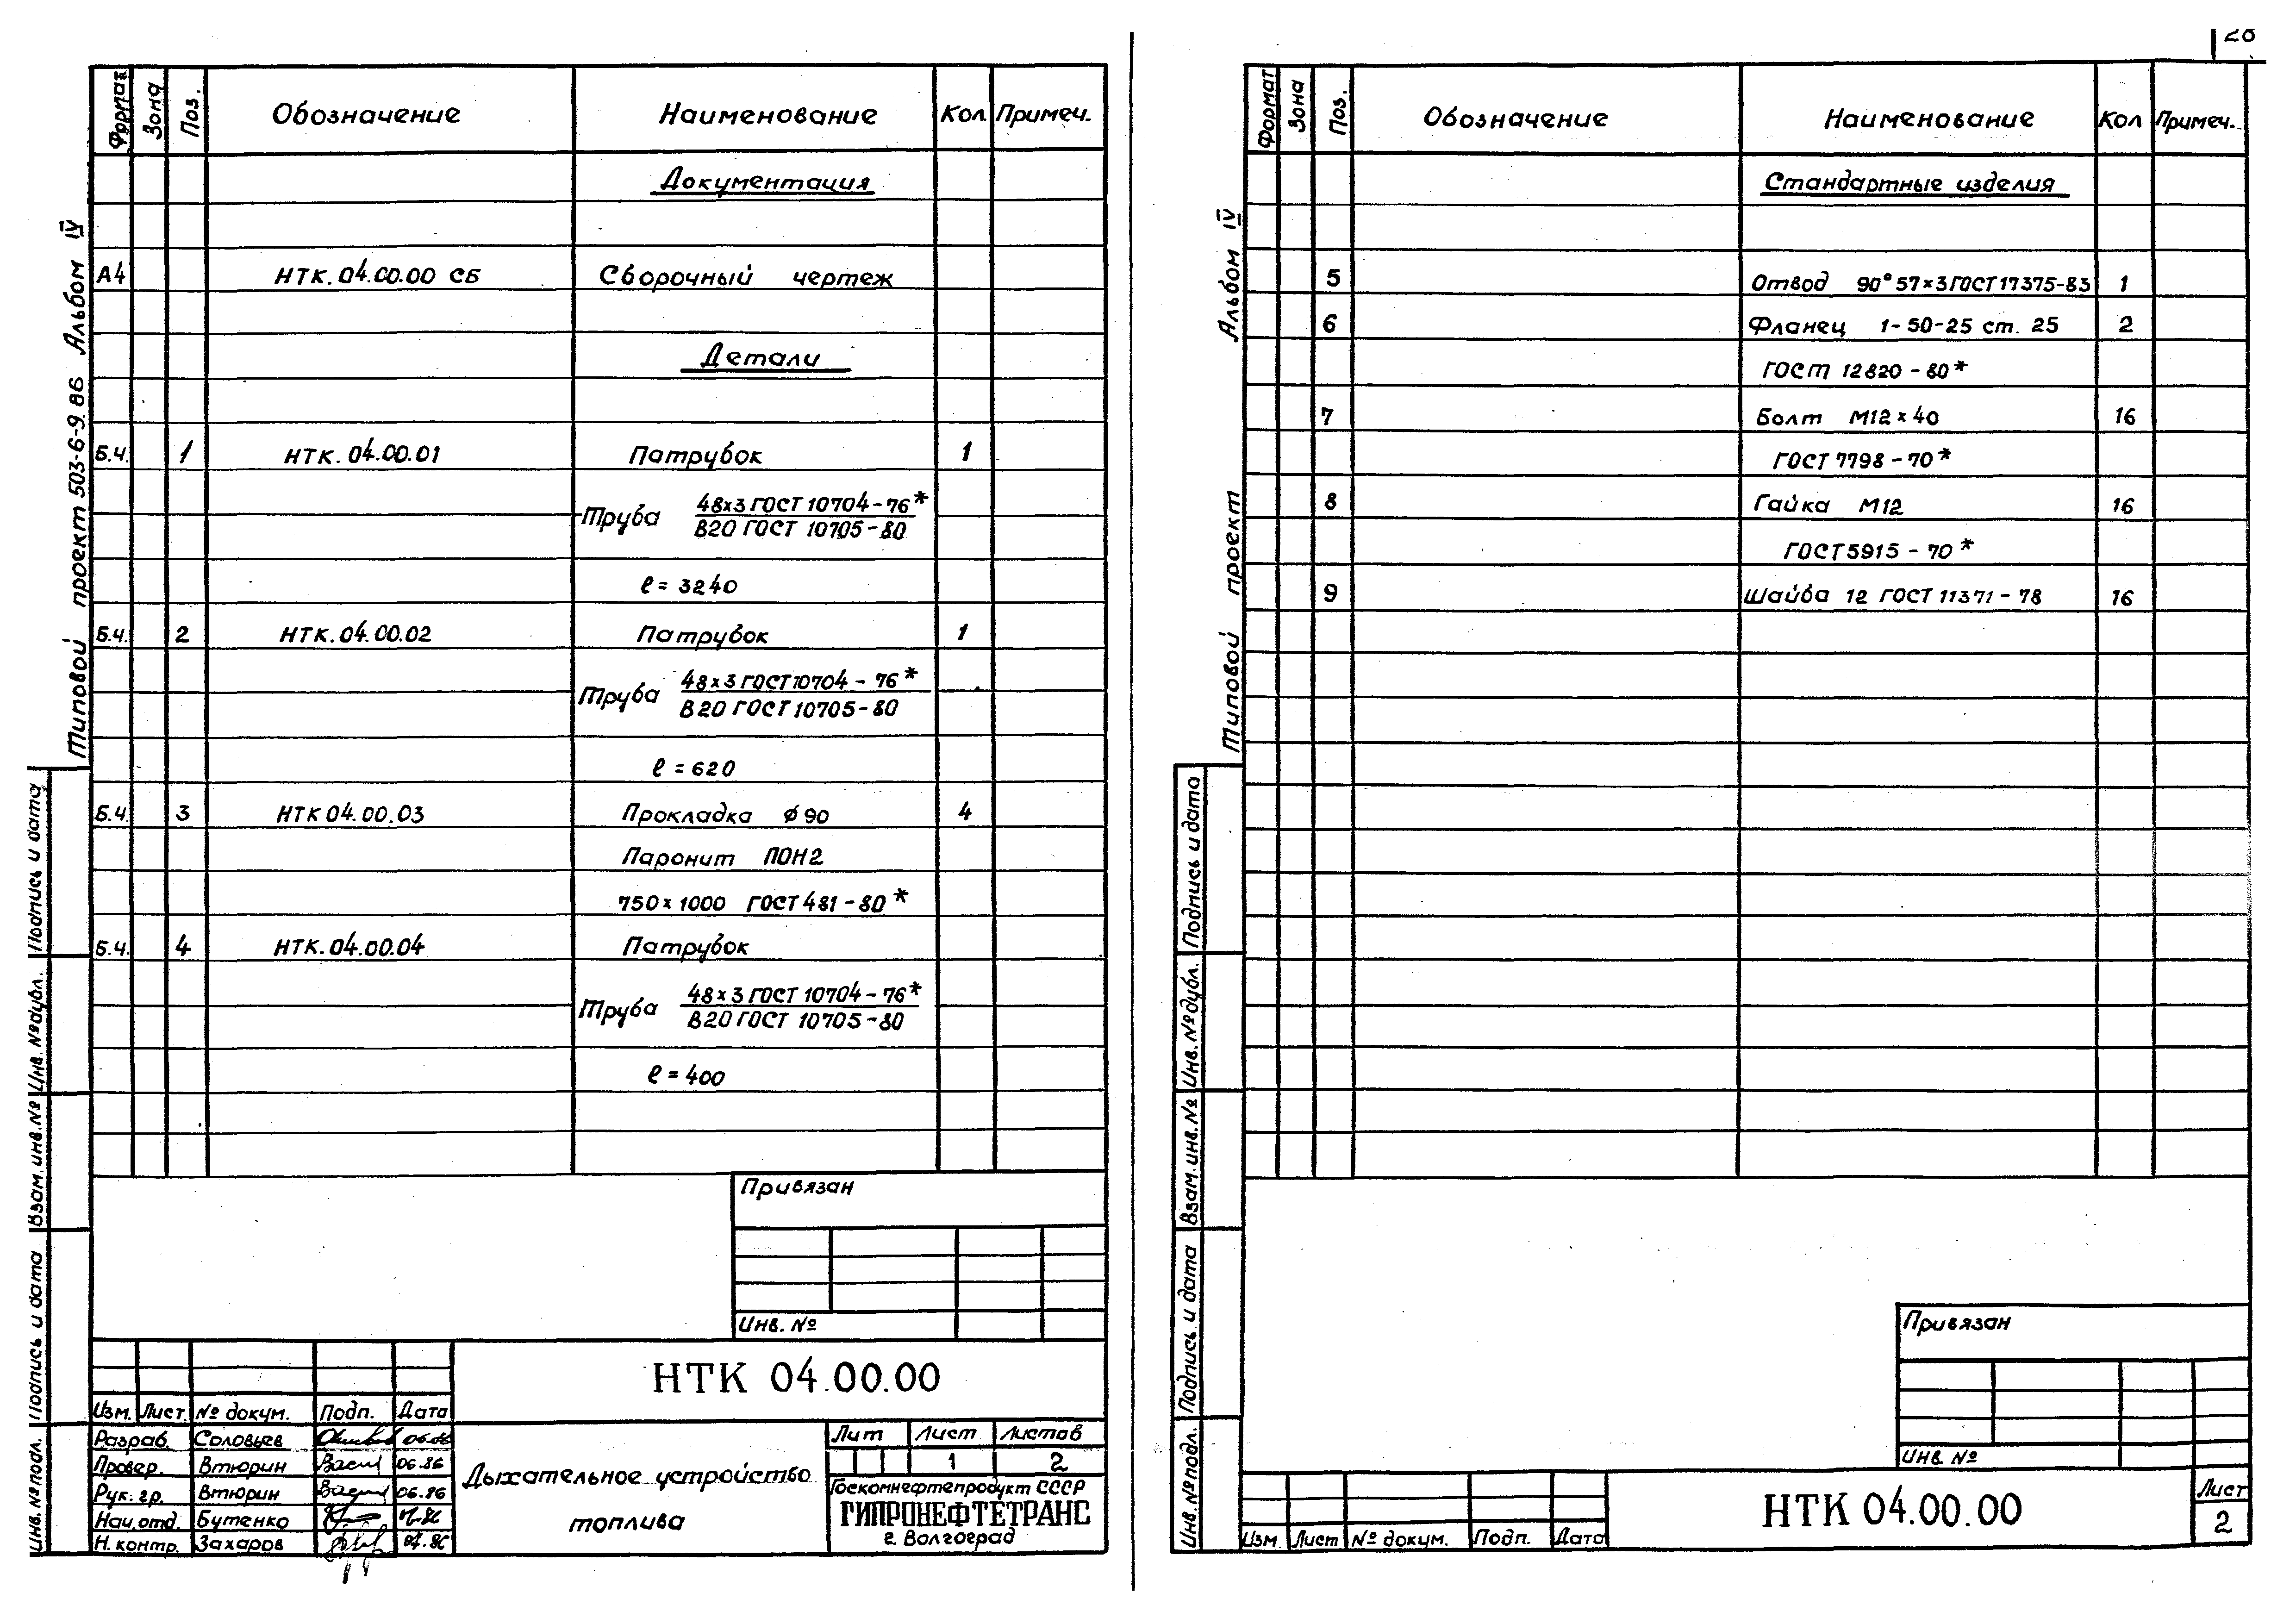 28
Типовой проект 503-6-9.86 Альбом IV
Формат Зона Поз. Обозначение Наименование Кол Примеч.
Документация
А4 НТК.04.00.00 СБ Сборочный чертеж
Детали
Б.ч. 1 НТК.04.00.01 Патрубок 1
Труба 48х3 ГОСТ 10704-76*
В20 ГОСТ 10705-80
ℓ = 3240
Б.ч. 2 НТК.04.00.02 Патрубок 1
Труба 48х3 ГОСТ 10704-76*
В20 ГОСТ 10705-80
ℓ = 620
Б.ч. 3 НТК 04.00.03 Прокладка ϕ 90 4
Паронит ПОН2
750х1000 ГОСТ 481-80*
Б.ч. 4 НТК.04.00.04 Патрубок
Труба 48х3 ГОСТ 10704-76*
В20 ГОСТ 10705-80
ℓ = 400
Привязан
Инв. №
НТК 04.00.00
Изм. Лист. № докум. Подп. Дата
Разраб. Соловьев 06.86
Провер. Втюрин 06.86
Рук. гр. Втюрин 06.86
Нач. отд. Бутенко 07.86
Н. контр. Захаров 07.86
Дыхательное устройство
топлива
Лит Лист Листов
1 2
Госкомнефтепродукт СССР
ГИПРОНЕФТЕТРАНС
г. Волгоград
Инв. № подл. Подпись и дата Взам. инв. № Инв. № дубл. Подпись и дата
Типовой проект Альбом IV
Формат Зона Поз. Обозначение Наименование Кол Примеч.
Стандартные изделия
5 Отвод 90° 57х3 ГОСТ 17375-83 1
6 Фланец 1-50-25 ст. 25 2
ГОСТ 12820-80*
7 Болт М12х40 16
ГОСТ 7798-70*
8 Гайка М12 16
ГОСТ 5915-70*
9 Шайба 12 ГОСТ 11371-78 16
Привязан
Инв. №
Изм. Лист № докум. Подп. Дата
НТК 04.00.00
Лист
2
Инв. № подл. Подпись и дата Взам. инв. № Инв. № дубл. Подпись и дата